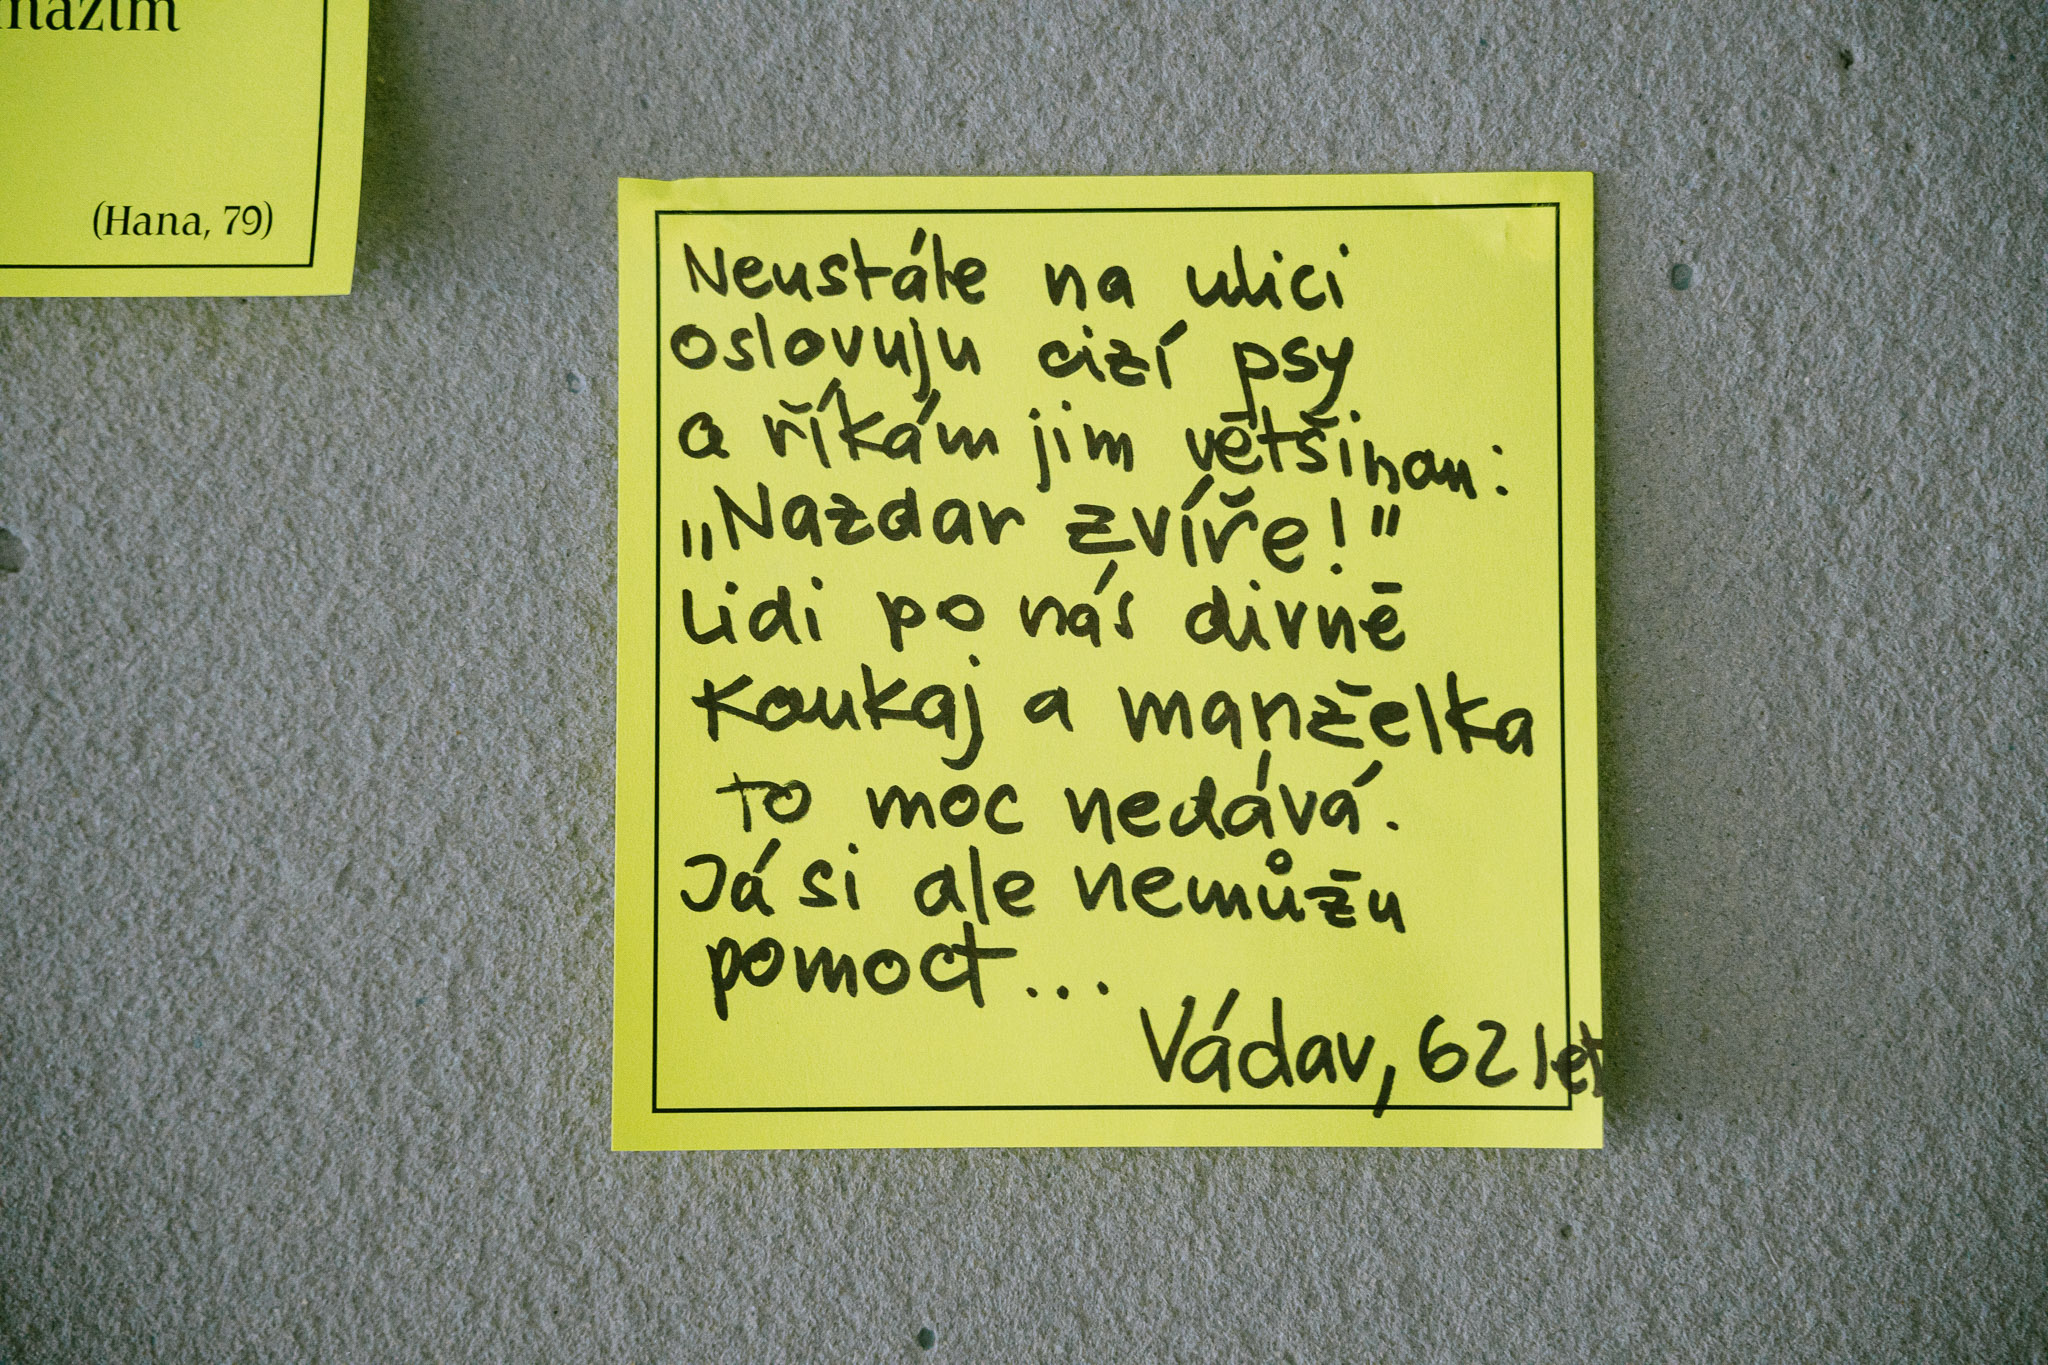 mazím
(Hana, 79)
Neustále na ulici
oslovuju cizí psy
a říkám jim většinou:
„Nazdar zvíře!"
Lidi po nás divně
koukaj a manželka
to moc nedává.
Já si ale nemůžu
pomoct...
Václav, 62 let